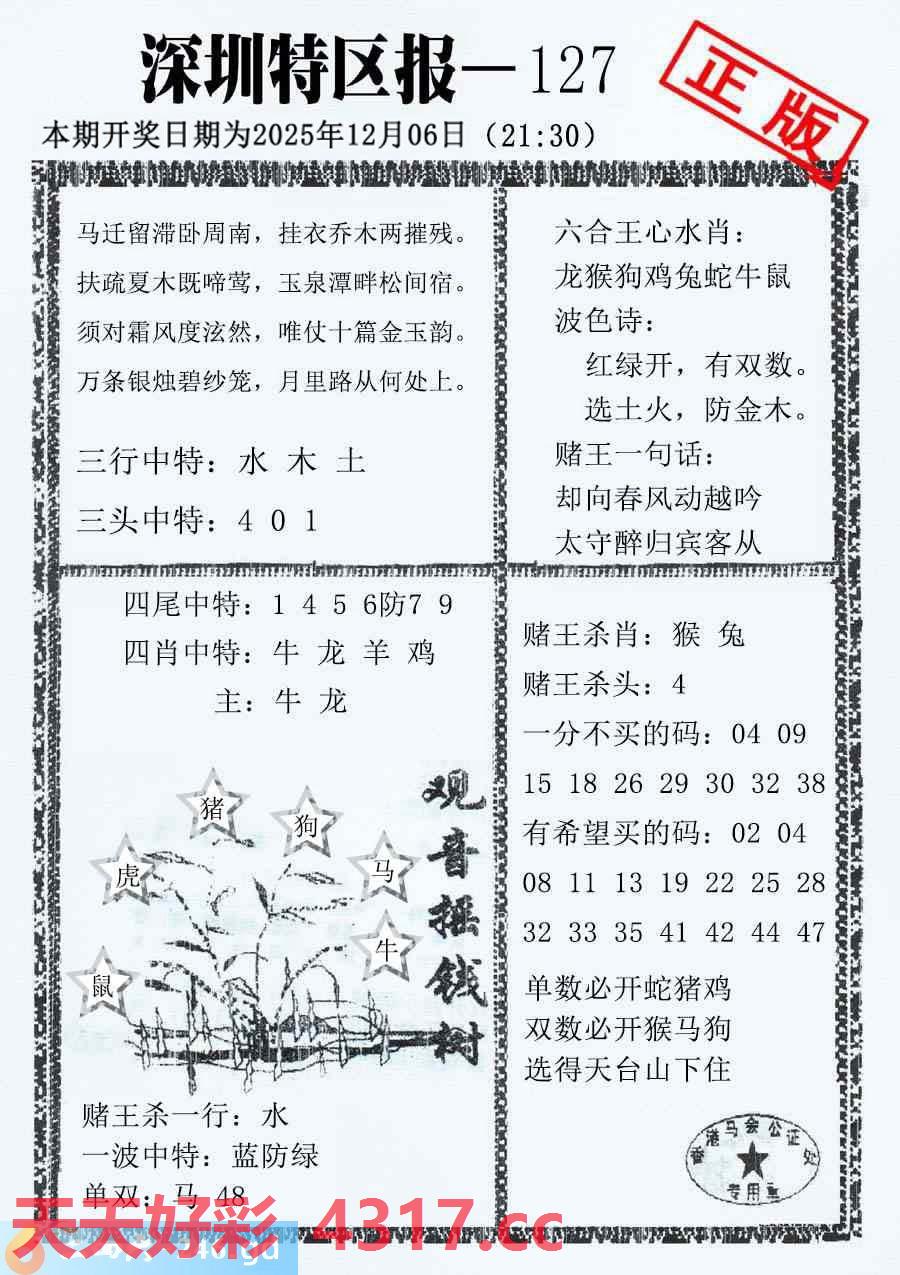 深圳特区报—127
正版
本期开奖日期为2025年12月06日（21:30）
马迁留滞卧周南，挂衣乔木两摧残。
扶疏夏木既啼莺，玉泉潭畔松间宿。
须对霜风度泫然，唯仗十篇金玉韵。
万条银烛碧纱笼，月里路从何处上。
三行中特：水 木 土
三头中特：4 0 1
六合王心水肖：
龙猴狗鸡兔蛇牛鼠
波色诗：
红绿开，有双数。
选土火，防金木。
赌王一句话：
却向春风动越吟
太守醉归宾客从
四尾中特：1 4 5 6防7 9
四肖中特：牛 龙 羊 鸡
主：牛 龙
观音摇钱树
猪
狗
虎
马
牛
鼠
赌王杀一行：水
一波中特：蓝防绿
单双：马 48
赌王杀肖：猴 兔
赌王杀头：4
一分不买的码：04 09
15 18 26 29 30 32 38
有希望买的码：02 04
08 11 13 19 22 25 28
32 33 35 41 42 44 47
单数必开蛇猪鸡
双数必开猴马狗
选得天台山下住
香港马会公证处
专用章
天天好彩 4317.cc